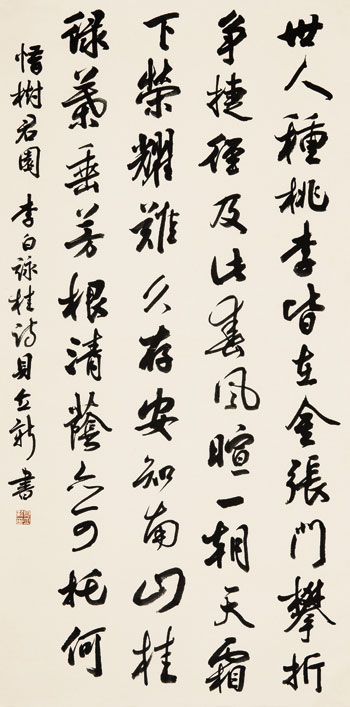 世人種桃李皆在金張門攀折
争捷徑及此春風暄一朝天霜
下榮耀難久存安知南山桂
綠葉垂芳根清蔭亦可托何
惜樹君園 李白詠桂詩 貝立新 書